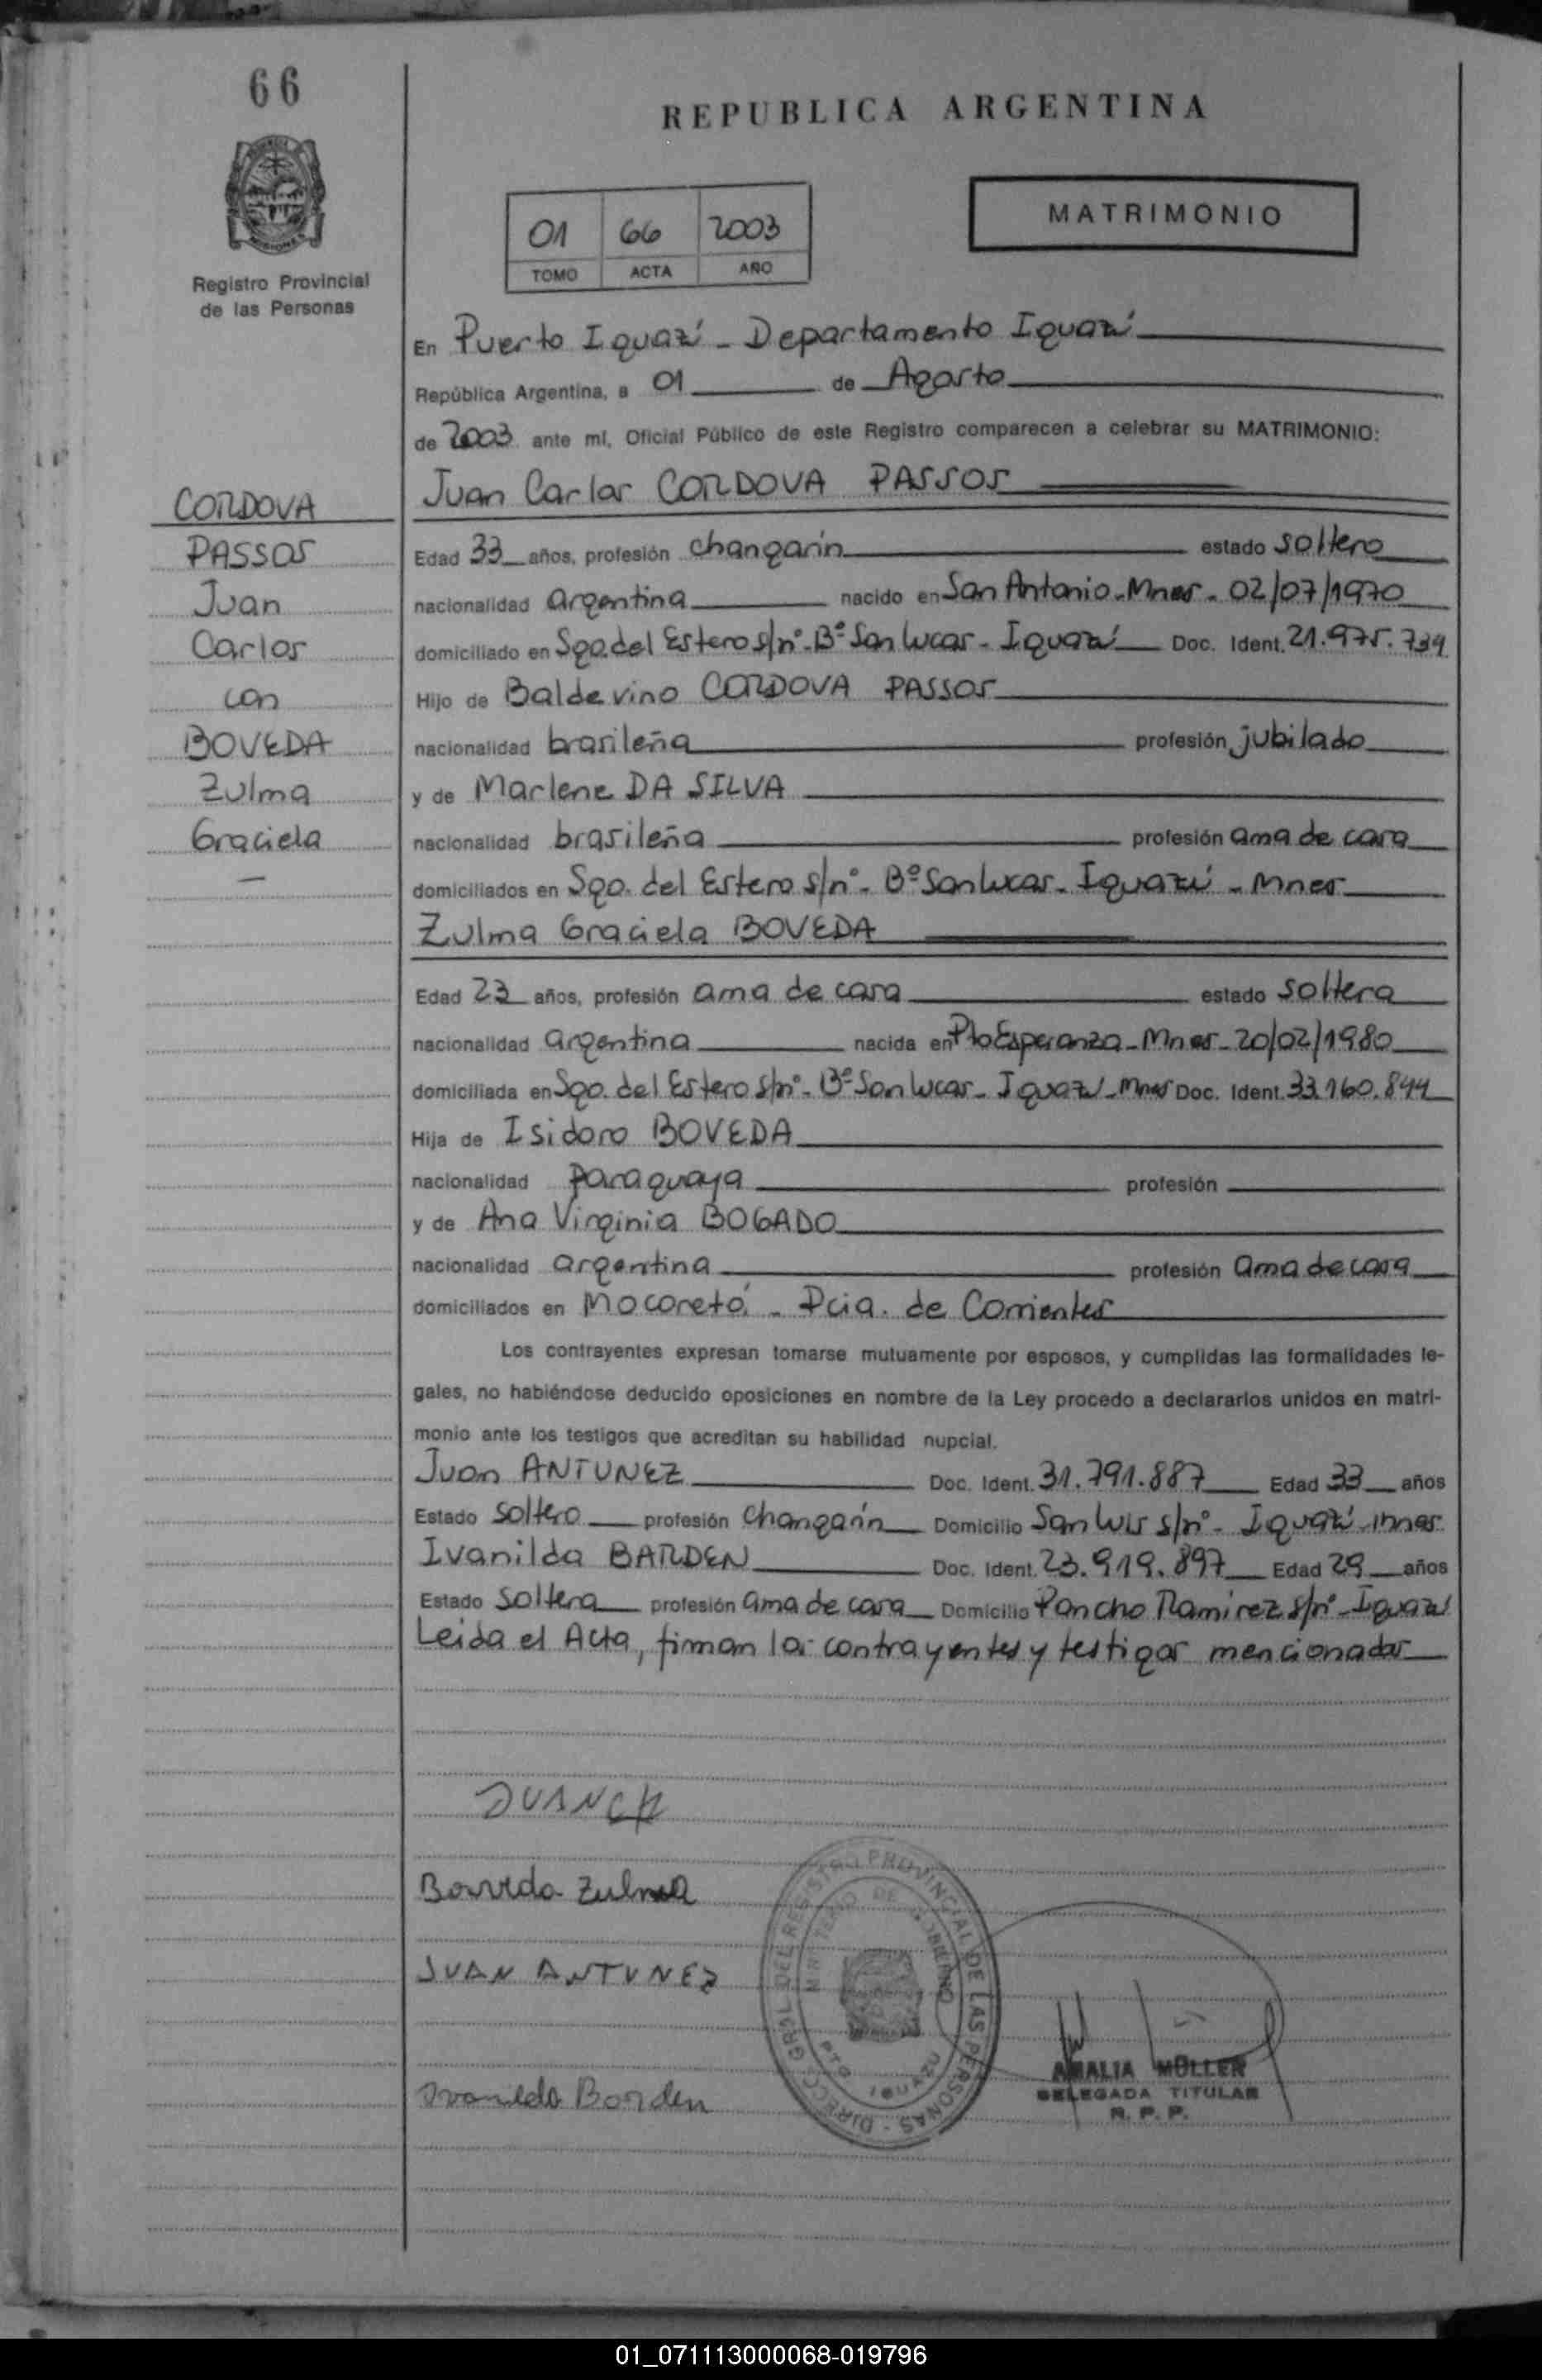 66
REPUBLICA ARGENTINA
MATRIMONIO
01 66 2003
TOMO ACTA AÑO
Registro Provincial
de las Personas
En Puerto Iguazú - Departamento Iguazú
República Argentina, a 01 de Agosto
de 2003 ante mí, Oficial Público de este Registro comparecen a celebrar su MATRIMONIO:
CORDOVA
PASSOS
Juan
Carlos
con
BOVEDA
Zulma
Graciela
—
Juan Carlos CORDOVA PASSOS
Edad 33 años, profesión changarín estado soltero
nacionalidad argentina nacido en San Antonio - Mnes - 02/07/1970
domiciliado en Sgo. del Estero s/nº - Bº San Lucas - Iguazú Doc. Ident. 21.975.739
Hijo de Baldevino CORDOVA PASSOS
nacionalidad brasileña profesión jubilado
y de Marlene DA SILVA
nacionalidad brasileña profesión ama de casa
domiciliados en Sgo. del Estero s/nº - Bº San Lucas - Iguazú - Mnes
Zulma Graciela BOVEDA
Edad 23 años, profesión ama de casa estado soltera
nacionalidad argentina nacida en Pto Esperanza - Mnes - 20/02/1980
domiciliada en Sgo. del Estero s/nº - Bº San Lucas - Iguazú - Mnes Doc. Ident. 33.160.844
Hija de Isidoro BOVEDA
nacionalidad paraguaya profesión
y de Ana Virginia BOGADO
nacionalidad argentina profesión ama de casa
domiciliados en Mocoretó - Pcia. de Corrientes
Los contrayentes expresan tomarse mutuamente por esposos, y cumplidas las formalidades le-
gales, no habiéndose deducido oposiciones en nombre de la Ley procedo a declararlos unidos en matri-
monio ante los testigos que acreditan su habilidad nupcial.
Juan ANTUNEZ Doc. Ident. 31.791.887 Edad 33 años
Estado soltero profesión changarín Domicilio San Luis s/nº - Iguazú - Mnes
Ivanilda BARDEN Doc. Ident. 23.919.897 Edad 29 años
Estado soltera profesión ama de casa Domicilio Pancho Ramirez s/nº - Iguazú
Leida el Acta, firman los contrayentes y testigos mencionados
JUANCH
Bovveda Zulma
JUAN ANTUNEZ
Ivanilda Borden
DIRECC. GRAL. DEL REGISTRO PROVINCIAL DE LAS PERSONAS -
MINISTERIO DE GOBIERNO
PTO IGUAZU
AMALIA MÜLLER
DELEGADA TITULAR
R. P. P.
01_071113000068-019796